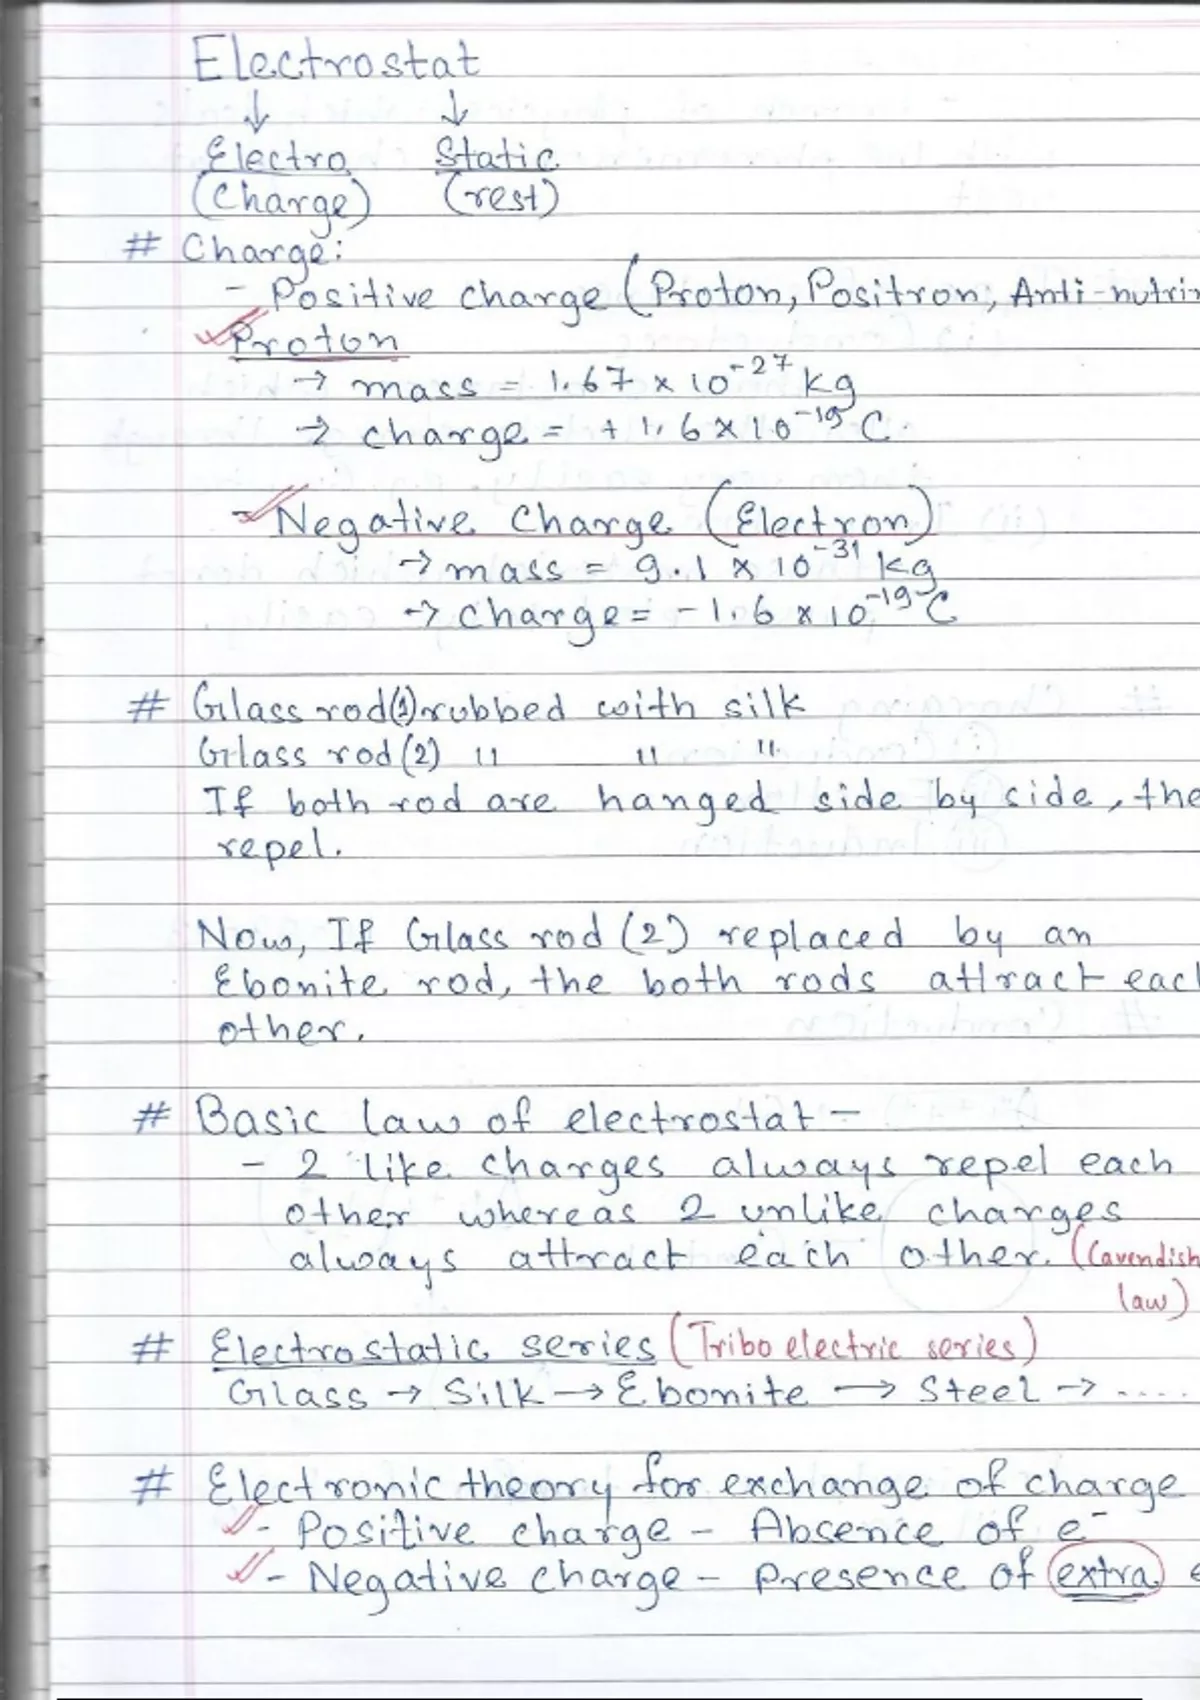 Electrostat
↓ ↓
Electro Static
(Charge) (rest)
# Charge:
- Positive charge (Proton, Positron, Anti-nutri
Proton
→ mass = 1.67 × 10⁻²⁷ kg
→ charge = + 1.6 × 10⁻¹⁹ C.
- Negative Charge (Electron)
→ mass = 9.1 × 10⁻³¹ kg
→ charge = - 1.6 × 10⁻¹⁹ C
# Glass rod(1) rubbed with silk
Glass rod (2) " " "
If both rod are hanged side by side, the
repel.
Now, If Glass rod (2) replaced by an
Ebonite rod, the both rods attract each
other.
# Basic law of electrostat –
- 2 like charges always repel each
other whereas 2 unlike charges
always attract each other. (Cavendish
law)
# Electrostatic series (Tribo electric series)
Glass → Silk → Ebonite → Steel → .....
# Electronic theory for exchange of charge
- Positive charge - Absence of e⁻
- Negative charge - Presence of extra e